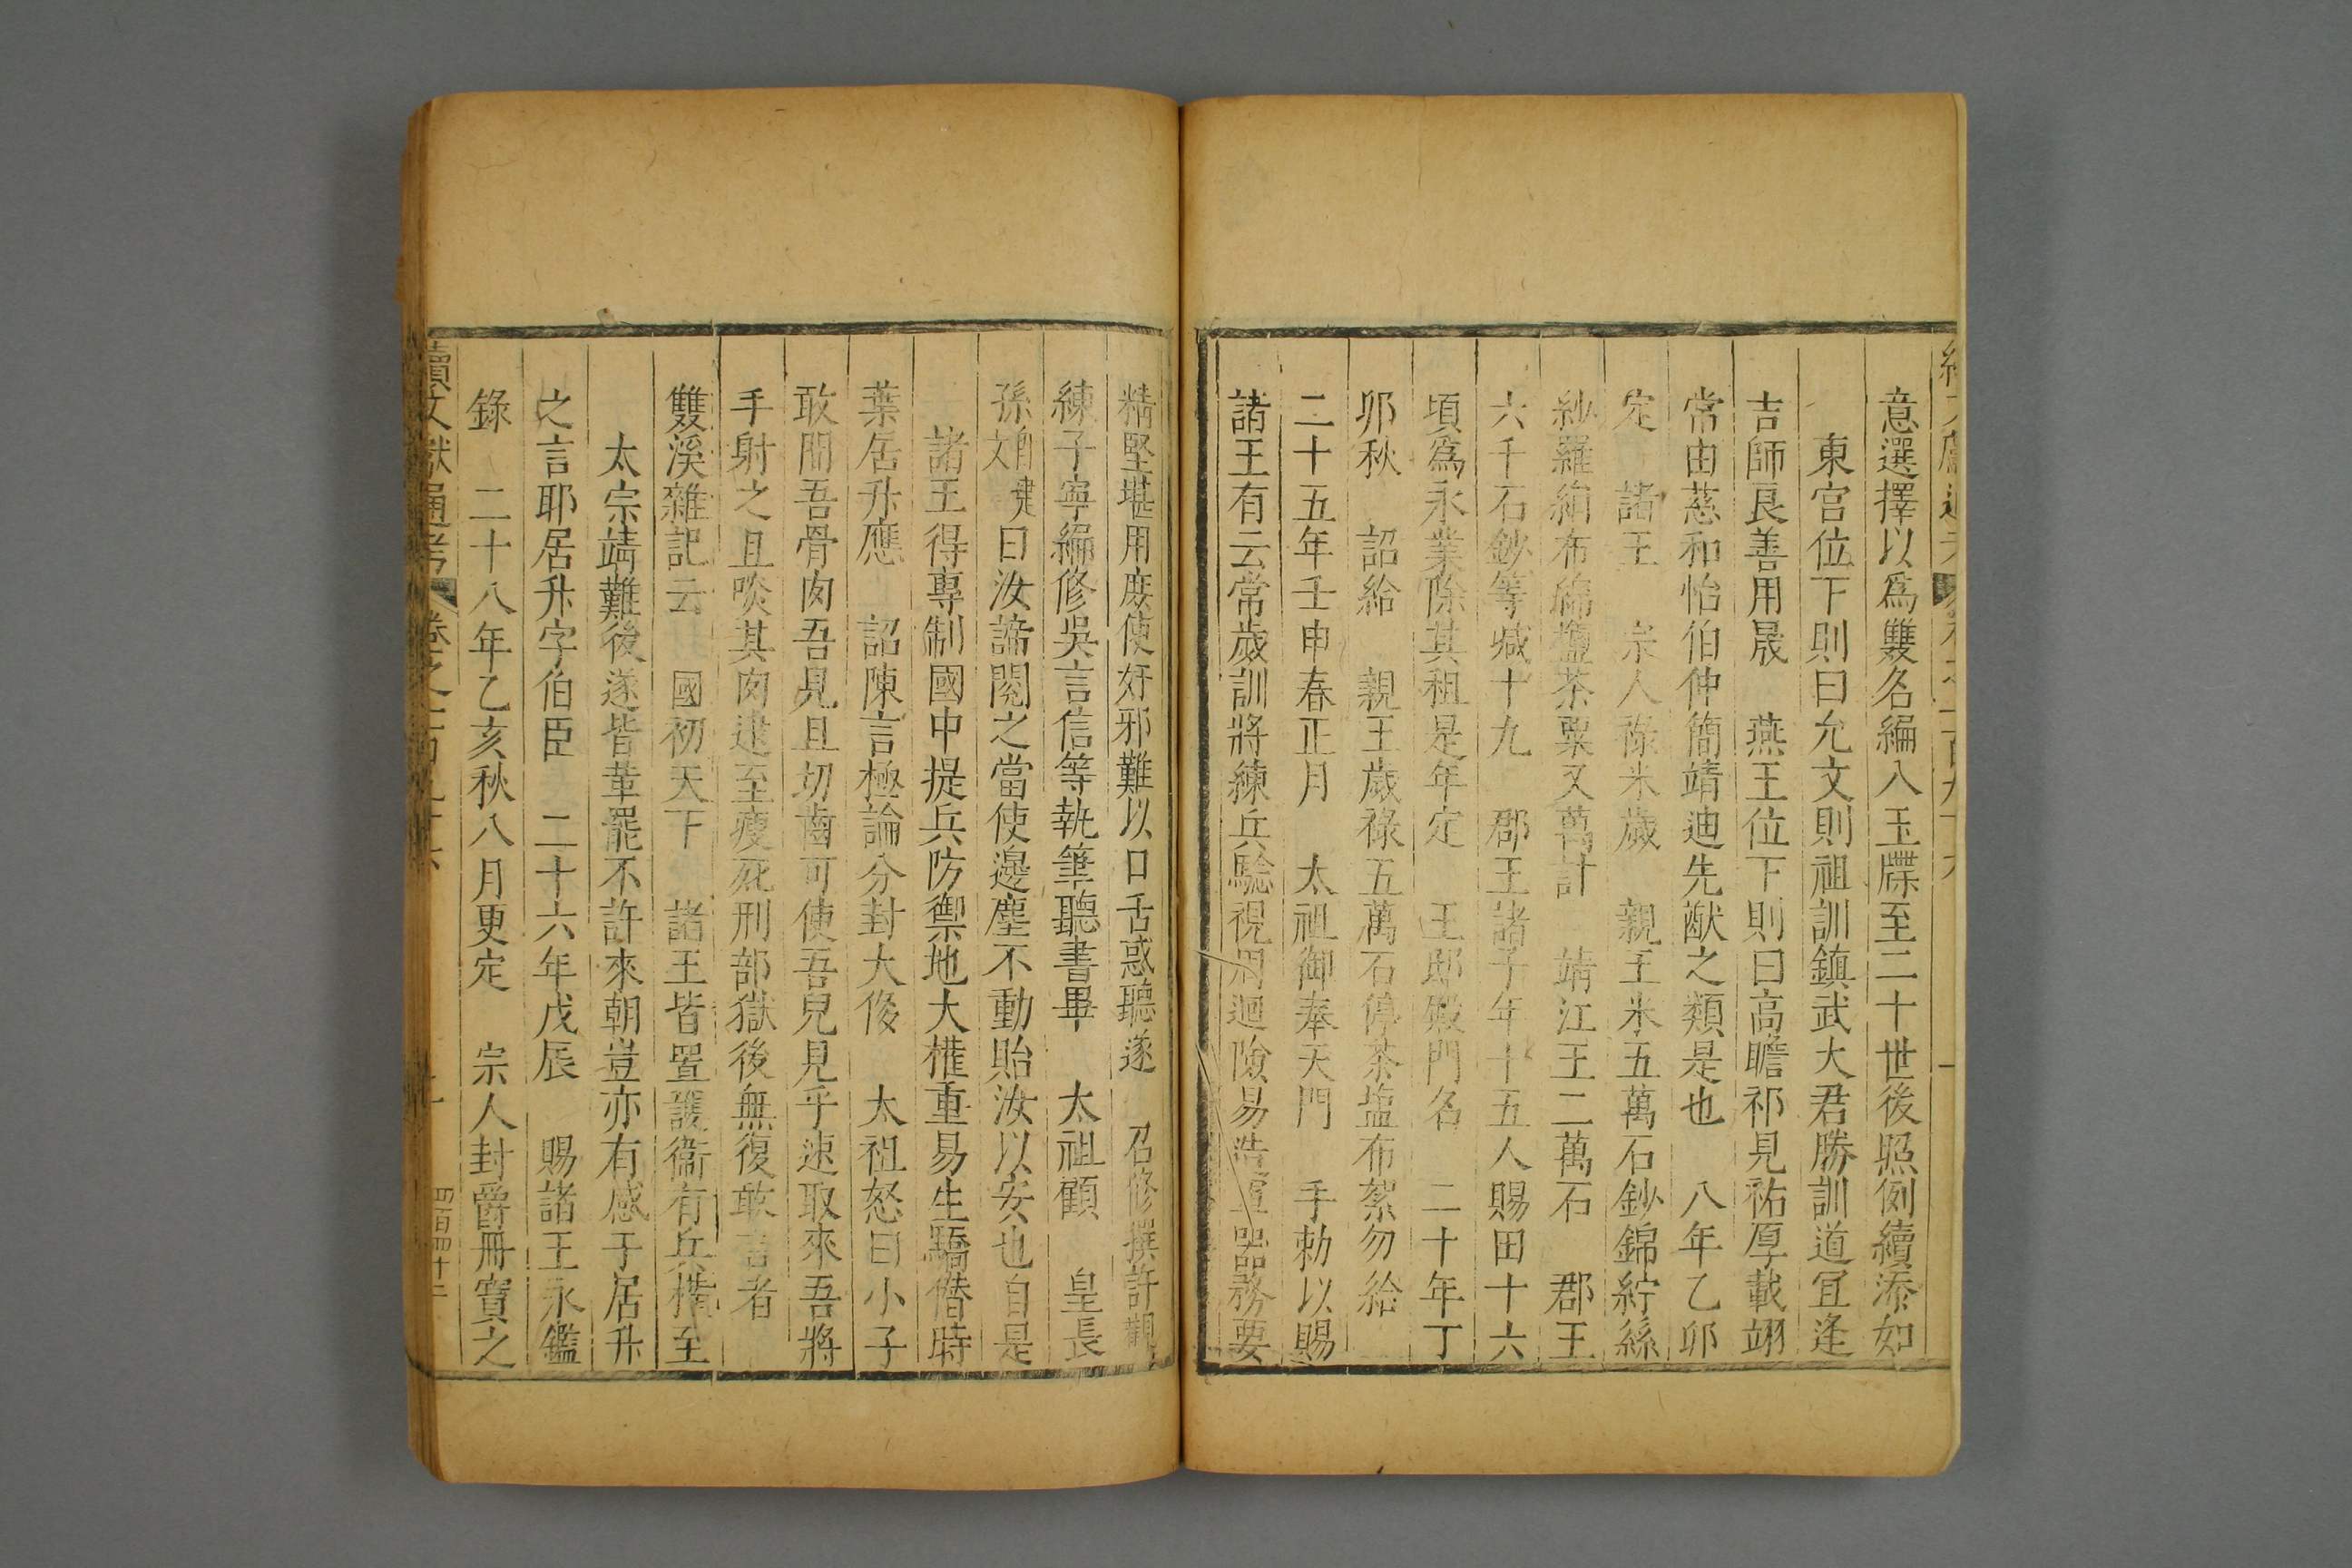 意選擇以爲雙名編入玉牒至二十世後照例續添如
東宮位下則曰允文則祖訓鎮武大君勝訓道冝逢
吉師良善用晟 燕王位下則曰高瞻祁見祐厚載翊
常由慈和怡伯仲簡靖迪先猷之類是也 八年乙卯
定 諸王 宗人祿米歲 親王米五萬石鈔錦紵絲
紗羅絹布綿鹽茶粟又萬計 靖江王二萬石 郡王
六千石鈔等咸十九 郡王諸子年十五人賜田十六
頃爲永業除其租是年定 王邸殿門名 二十年丁
卯秋 詔給 親王歲祿五萬石停茶塩布絮勿給
二十五年壬申春正月 太祖御奉天門 手勅以賜
諸王有云常歲訓將練兵騐視周迴險易造 器務要
精堅堪用庶使奸邪難以口舌惑聽遂 召修撰許觀
練子寧編修吳言信等執筆聽書畢 太祖顧 皇長
孫 曰汝諦閱之當使邊塵不動貽汝以安也自是
諸王得專制國中提兵防禦地大權重易生驕僭時
葉居升應 詔陳言極論分封大侈 太祖怒曰小子
敢間吾骨肉吾見且切齒可使吾兒見乎速取來吾將
手射之且啖其肉逮至瘦死刑部獄後無復敢言者
雙溪雜記云 國初天下 諸王皆置護衞有兵權至
太宗靖難後遂皆革罷不許來朝豈亦有感于居升
之言耶居升字伯臣 二十六年戊辰 賜諸王永鑑
錄 二十八年乙亥秋八月更定 宗人封爵冊寶之
續文獻通考 卷之二百